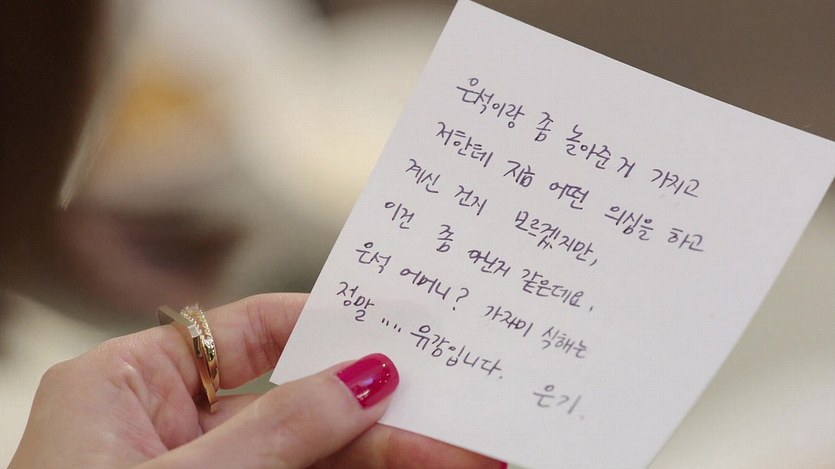 은석이랑 좀 놀아준 거 가지고
저한테 지금 어떤 의심을 하고
계신 건지 모르겠지만,
이건 좀 아닌거 같은데요.
은석 어머니? 가자미 식해는
정말 .... 유감입니다.
은기.